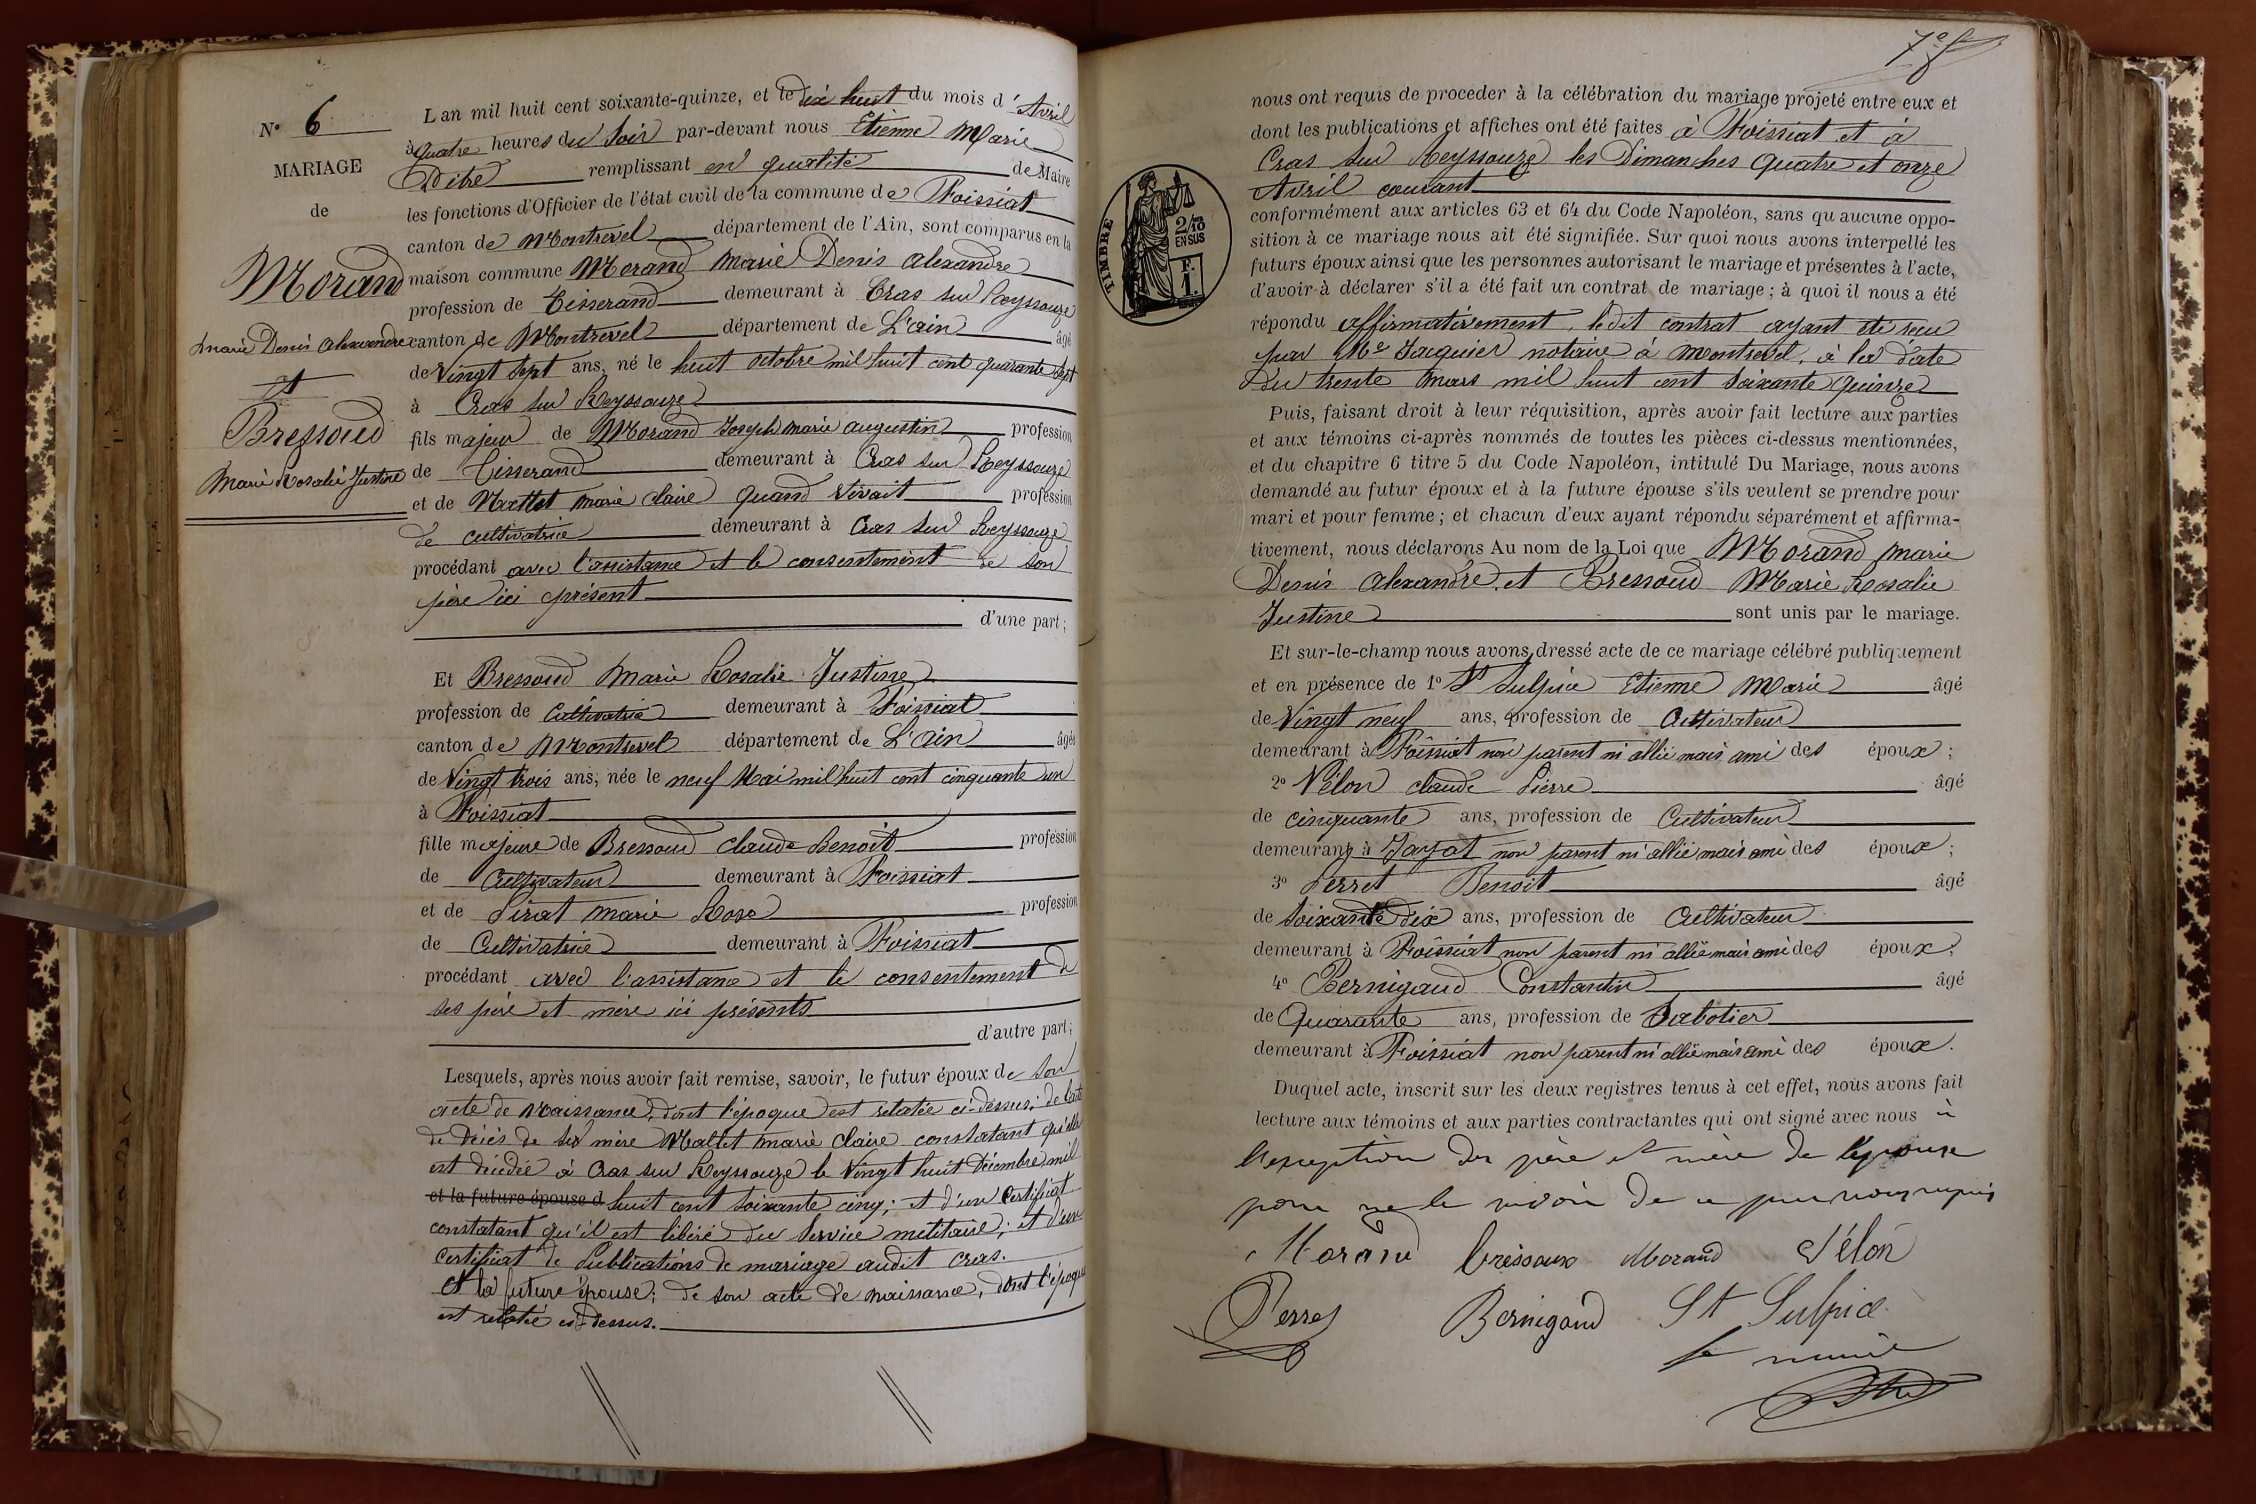 N° 6
MARIAGE
de
Morand
Marie Denis Alexandre
et
Bressoud
Marie Rosalie Justine
L'an mil huit cent soixante-quinze, et le dix huit du mois d'Avril
à quatre heures du soir par-devant nous Etienne Marie
remplissant en qualité de Maire
les fonctions d'Officier de l'état civil de la commune de Foissiat
canton de Montrevel département de l'Ain, sont comparus en la
maison commune Morand Marie Denis Alexandre
profession de Tisserand demeurant à Cras sur Reyssouze
canton de Montrevel département de L'ain âgé
de Vingt sept ans, né le huit octobre mil huit cent quarante sept
à Cras sur Reyssouze
fils majeur de Morand Joseph Marie Augustin profession
de Tisserand demeurant à Cras sur Reyssouze
et de Mattet Marie Claire quand vivait profession
de cultivatrice demeurant à Cras sur Reyssouze
procédant avec l'assistance et le consentement de son
père ici présent
d'une part;
Et Bressoud Marie Rosalie Justine
profession de Cultivatrice demeurant à Foissiat
canton de Montrevel département de L'ain âgée
de Vingt trois ans, née le neuf Mai mil huit cent cinquante un
à Foissiat
fille majeure de Bressoud Claude Benoît profession
de Cultivateur demeurant à Foissiat
et de Pirat Marie Rose profession
de Cultivatrice demeurant à Foissiat
procédant avec l'assistance et le consentement de
ses père et mère ici présents
d'autre part;
Lesquels, après nous avoir fait remise, savoir, le futur époux de son
acte de Naissance, dont l'époque est relatée ci-dessus; de l'acte
de décès de sa mère Mattet Marie Claire constatant qu'elle
est décédée à Cras sur Reyssouze le Vingt huit Décembre mil
et la future épouse d huit cent soixante cinq; et d'un Certificat
constatant qu'il est libéré du Service militaire; et d'un
Certificat de Publications de mariage audit Cras.
et la future épouse; de son acte de naissance, dont l'époque
est relatée ci-dessus.
7e f
TIMBRE
2/10
EN SUS
F.
1.
nous ont requis de proceder à la célébration du mariage projeté entre eux et
dont les publications et affiches ont été faites à Foissiat et à
Cras sur Reyssouze les Dimanches quatre et onze
Avril courant
conformément aux articles 63 et 64 du Code Napoléon, sans qu'aucune oppo-
sition à ce mariage nous ait été signifiée. Sur quoi nous avons interpellé les
futurs époux ainsi que les personnes autorisant le mariage et présentes à l'acte,
d'avoir à déclarer s'il a été fait un contrat de mariage; à quoi il nous a été
répondu affirmativement, ledit contrat ayant été reçu
par Me Jaquier notaire à Montrevel, à la date
du trente Mars mil huit cent soixante quinze
Puis, faisant droit à leur réquisition, après avoir fait lecture aux parties
et aux témoins ci-après nommés de toutes les pièces ci-dessus mentionnées,
et du chapitre 6 titre 5 du Code Napoléon, intitulé Du Mariage, nous avons
demandé au futur époux et à la future épouse s'ils veulent se prendre pour
mari et pour femme; et chacun d'eux ayant répondu séparément et affirma-
tivement, nous déclarons Au nom de la Loi que Morand Marie
Denis Alexandre et Bressoud Marie Rosalie
Justine sont unis par le mariage.
Et sur-le-champ nous avons dressé acte de ce mariage célébré publiquement
et en présence de 1° St Sulpice Etienne Marie âgé
de Vingt neuf ans, profession de Cultivateur
demeurant à Foissiat non parent ni allié mais ami des époux;
2° Pélon Claude Pierre âgé
de cinquante ans, profession de Cultivateur
demeurant à Jayat non parent ni allié mais ami des époux;
3° Perret Benoît âgé
de Soixante dix ans, profession de Cultivateur
demeurant à Foissiat non parent ni allié mais ami des époux;
4° Bernigaud Constantin âgé
de Quarante ans, profession de Sabotier
demeurant à Foissiat non parent ni allié mais ami des époux.
Duquel acte, inscrit sur les deux registres tenus à cet effet, nous avons fait
lecture aux témoins et aux parties contractantes qui ont signé avec nous à
l'exception des père et mère de l'épouse
pour ne le savoir de ce par nous requis
Morand Bressoux Morand Pélon
Perret Bernigaud St Sulpice
le maire